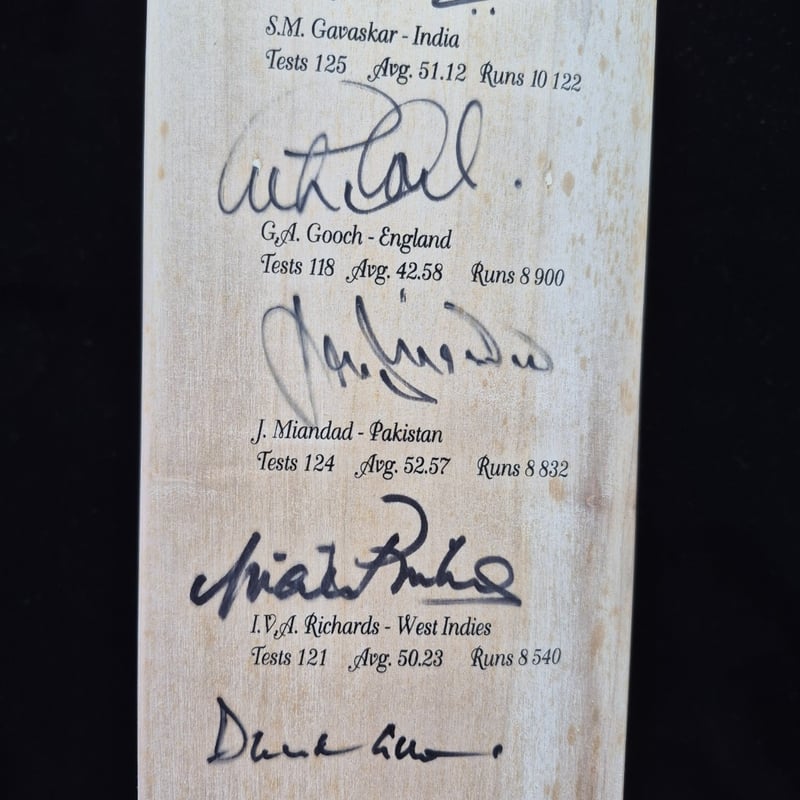 S.M. Gavaskar - India
Tests 125 Avg. 51.12 Runs 10 122
G.A. Gooch - England
Tests 118 Avg. 42.58 Runs 8 900
J. Miandad - Pakistan
Tests 124 Avg. 52.57 Runs 8 832
I.V.A. Richards - West Indies
Tests 121 Avg. 50.23 Runs 8 540